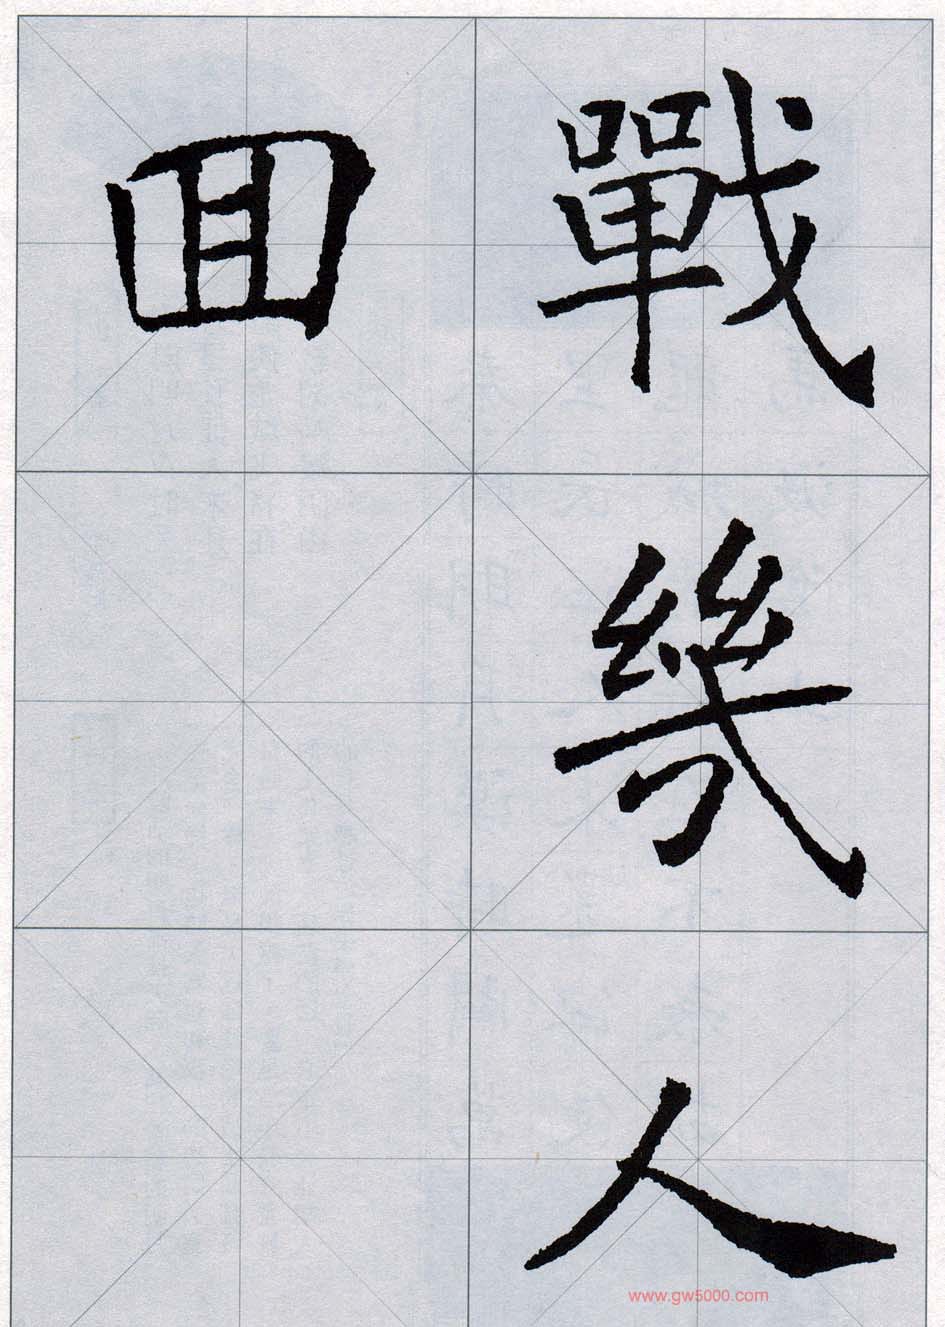 戰幾人
囬
www.gw5000.com